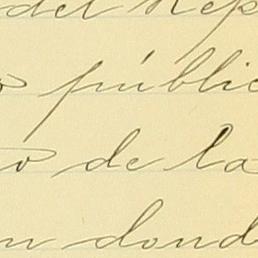 del Rep
o públic
o de la
n dond